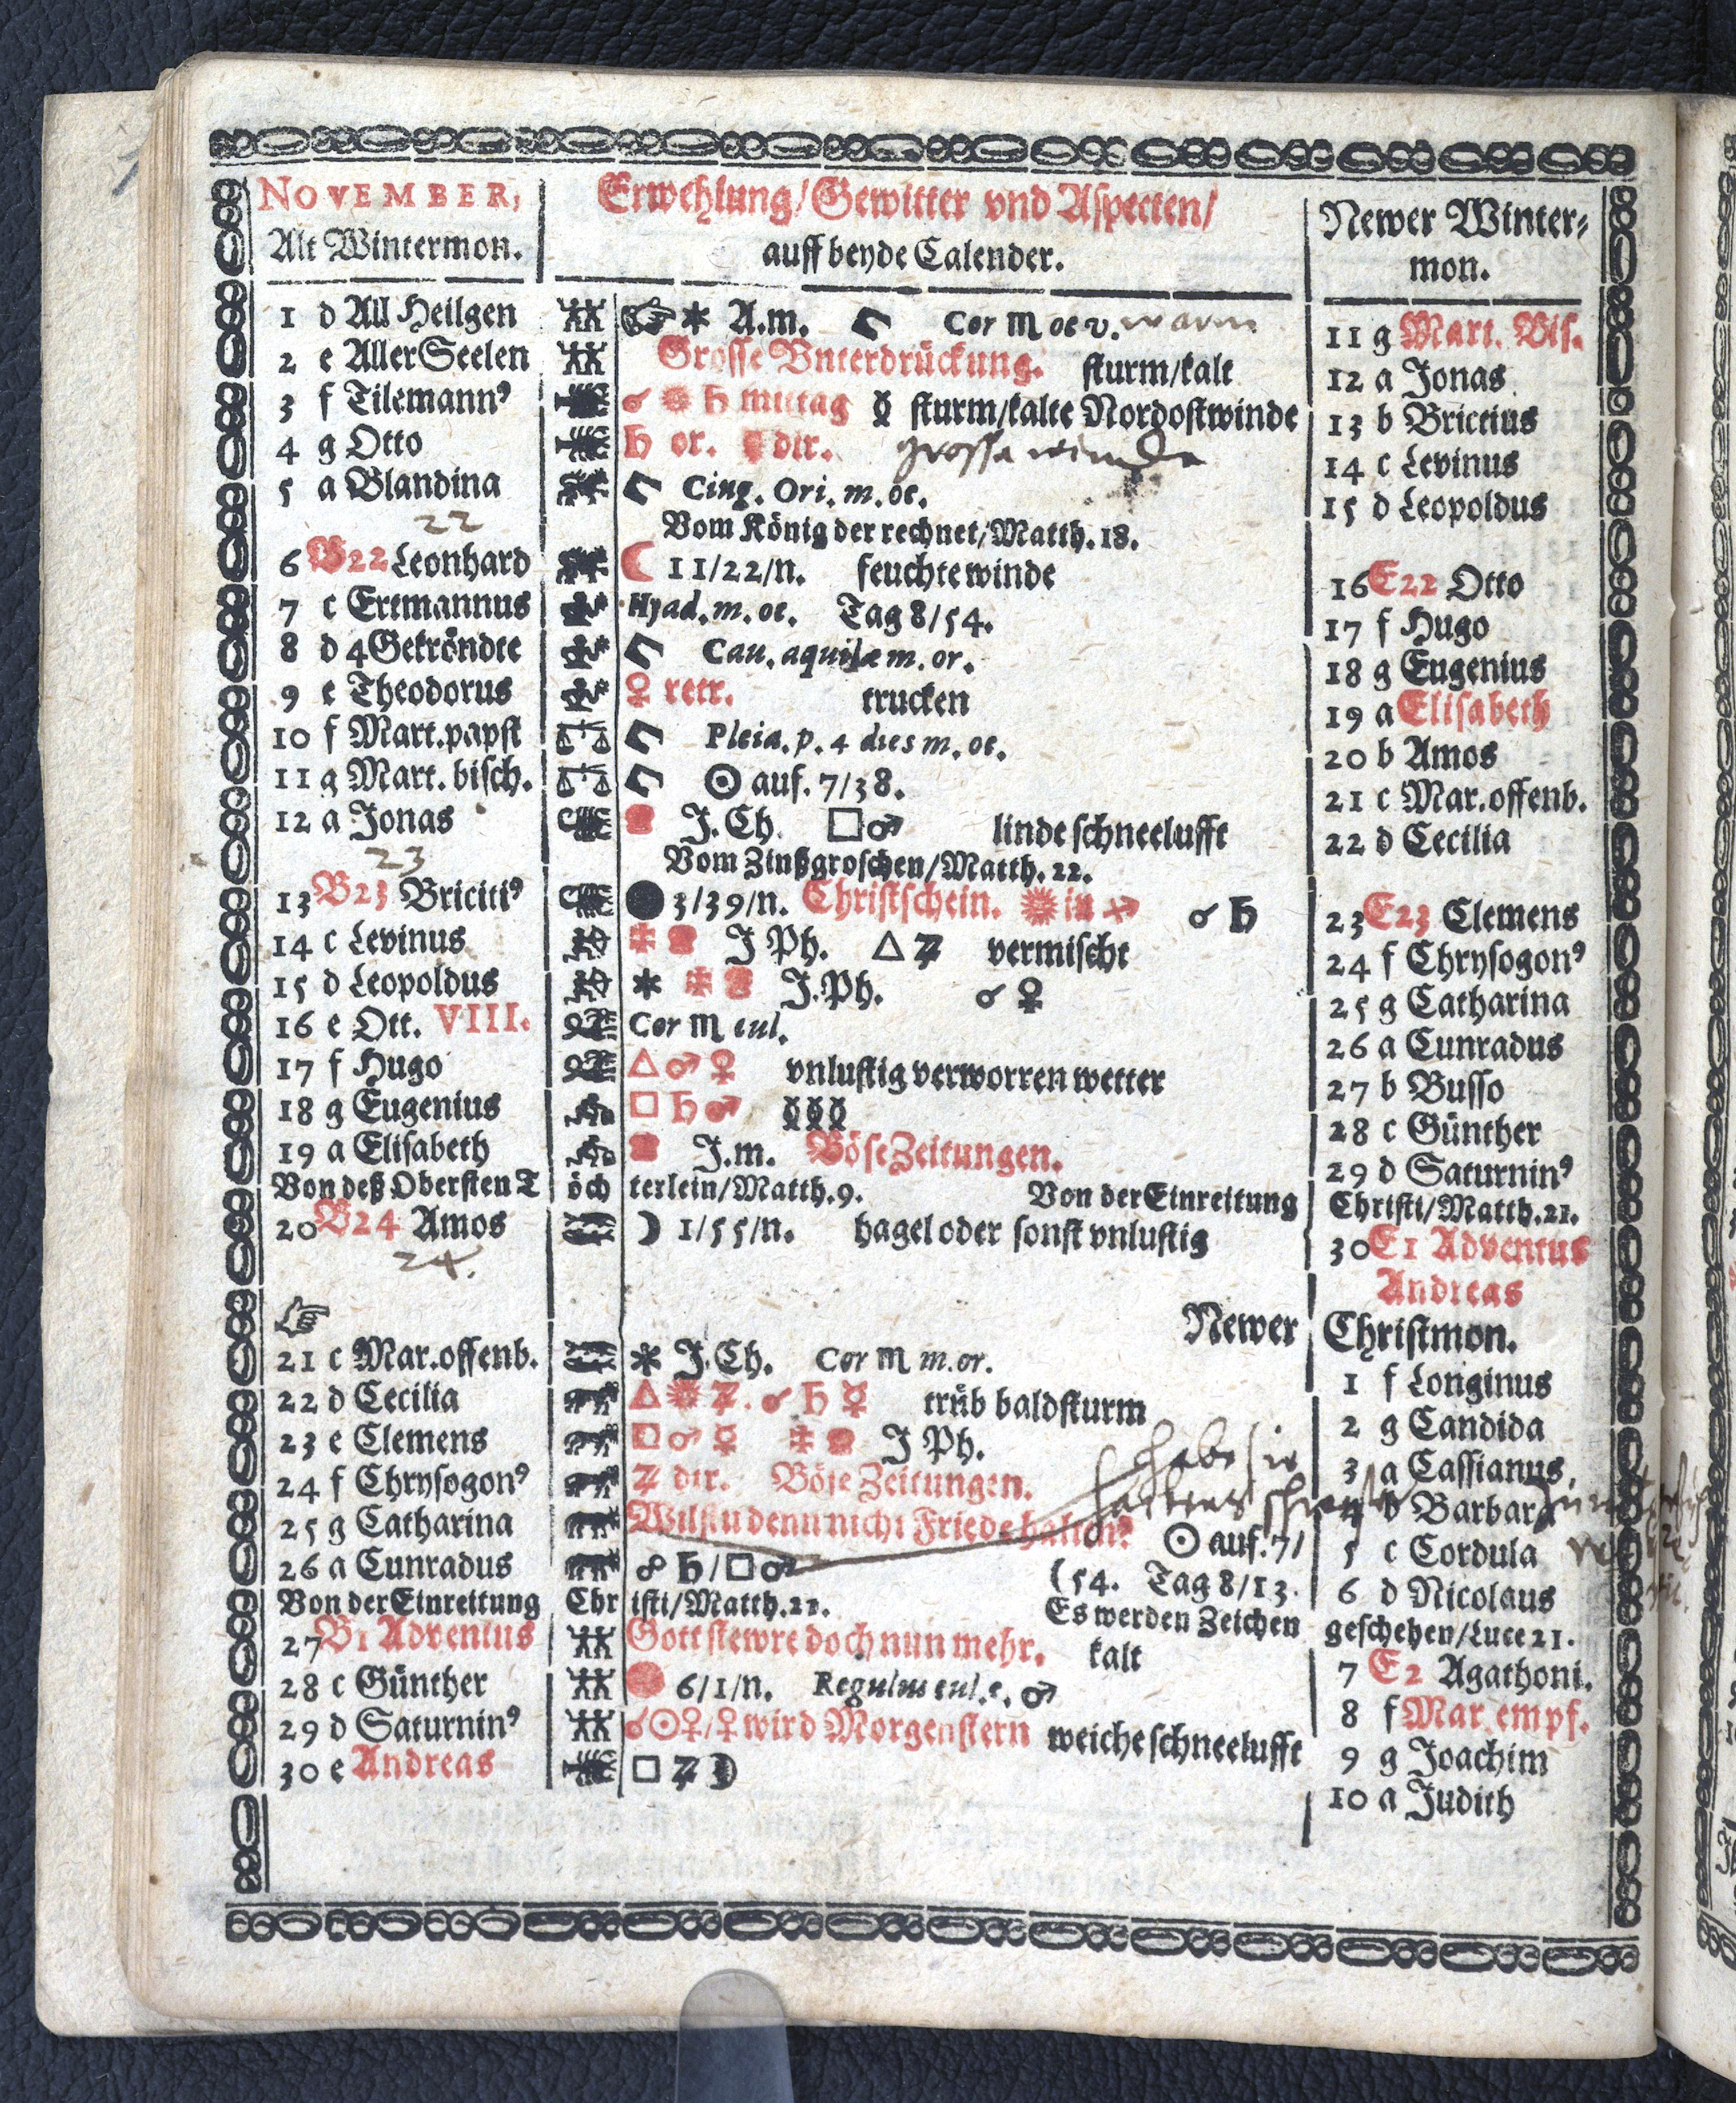 NOVEMBER, Erwehlung/Gewitter vnd Aspecten/ Newer Winter-
Alt Wintermon. auff beyde Calender. mon.
1 d All Heilgen * A.m. Cor ♏ oc v. warm 11 g Mart. Bis.
2 e Aller Seelen Grosse Vnterdrückung. sturm/kalt 12 a Jonas
3 f Tilemannꝰ ☌ ☀ ♄ mittag sturm/kalte Nordostwinde 13 b Brictius
4 g Otto ♄ or. dir. grosse winde 14 c Levinus
5 a Blandina Cing. Ori. m. oc. 15 d Leopoldus
22
Vom König der rechnet/Matth. 18.
6 B22 Leonhard ☾ 11/22/n. feuchte winde 16 E22 Otto
7 c Ertmannus Hyad. m. oc. Tag 8/54. 17 f Hugo
8 d 4 Gekröndte Cau. aquilæ m. or. 18 g Eugenius
9 e Theodorus ♀ retr. trucken 19 a Elisabeth
10 f Mart. papst Pleia. p. 4 dies m. oc. 20 b Amos
11 g Mart. bisch. ☉ auf. 7/38. 21 c Mar. offenb.
12 a Jonas J. Ch. □ ♂ linde schneelufft 22 d Cecilia
23
Vom Zinßgroschen/Matth. 22.
13 B23 Bricitiꝰ ● 3/39/n. Christschein. ☀ in ♐ ☌ ♄ 23 E23 Clemens
14 c Levinus J Ph. △ ♃ vermischt 24 f Chrysogonꝰ
15 d Leopoldus * J. Ph. ☌ ♀ 25 g Catharina
16 e Ott. VIII. Cor ♏ cul. 26 a Cunradus
17 f Hugo △ ♂ ♀ vnlustig verworren wetter 27 b Busso
18 g Eugenius □ ♄ ♂ 28 c Günther
19 a Elisabeth J. m. Böse Zeitungen. 29 d Saturninꝰ
Von deß Obersten Töchterlein/Matth. 9. Von der Einreitung Christi/Matth. 21.
20 B24 Amos ☽ 1/55/n. hagel oder sonst vnlustig 30 E1 Adventus
24. Andreas
☞ Newer Christmon.
21 c Mar. offenb. * J. Ch. Cor ♏ m. or. 1 f Longinus
22 d Cecilia △ ☀ ♃. ☌ ♄ ☿ trüb bald sturm 2 g Candida
23 e Clemens □ ♂ ☿ J Ph. habe sie 3 a Cassianus
24 f Chrysogonꝰ ♃ dir. Böse Zeitungen. 4 b Barbara
25 g Catharina Wilstu denn nicht Friede halten? ☉ auf. 7/ 5 c Cordula
26 a Cunradus ☍ ♄/□ ♂ (54. Tag 8/13. 6 d Nicolaus
Von der Einreitung Christi/Matth. 21. Es werden Zeichen geschehen/Luce 21.
27 B1 Adventus Gott stewre doch nun mehr. kalt 7 E2 Agathoni.
28 c Günther 6/1/n. Regulus cul. e. ♂ 8 f Mar. empf.
29 d Saturninꝰ ☌ ☉ ♀/♀ wird Morgenstern weiche schneelufft 9 g Joachim
30 e Andreas □ ♃ ☽ 10 a Judith